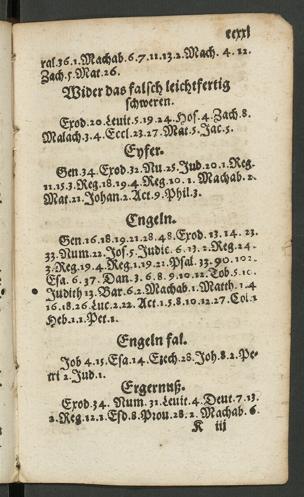 ccxxl
ral.36.1.Machab.6.7.11.13.2.Mach. 4.12.
Zach.5.Mat.26.
Wider das falsch leichtfertig
schweren.
Exod.20.Leuit.5.19.24.Hos.4.Zach.8.
Malach.3.4.Eccl.23.27.Mat.5.Jac.5.
Eyfer.
Gen.34.Exod.32.Nu.25.Jud.20.1.Reg.
11.15.3.Reg.18.19.4.Reg.10.1.Machab.2.
Mat.21.Johan.2.Act.9.Phil.3.
Engeln.
Gen.16.18.19.21.28.48.Exod.13.14.23.
33.Num.22.Jos.5.Judic.6.13.2.Reg.24.
3.Reg.19.4.Reg.1.19.21.Psal.33.90.102.
Esa.6.37.Dan.3.6.8.9.10.12.Tob.5.
Judith 13.Bar.6.2.Machab.1.Matth.1.4
16.18.26.Luc.2.22.Act.1.5.8.10.12.27.Col.1
Heb.1.1.Pet.1.
Engeln fal.
Job 4.15.Esa.14.Ezech.28.Joh.8.2.Pe-
tri 2.Jud.1.
Ergernuß.
Exod.34. Num.31.Leuit.4.Deut.7.13.
2.Reg.12.1.Esd.8.Prou.28.2.Machab.6.
K iij